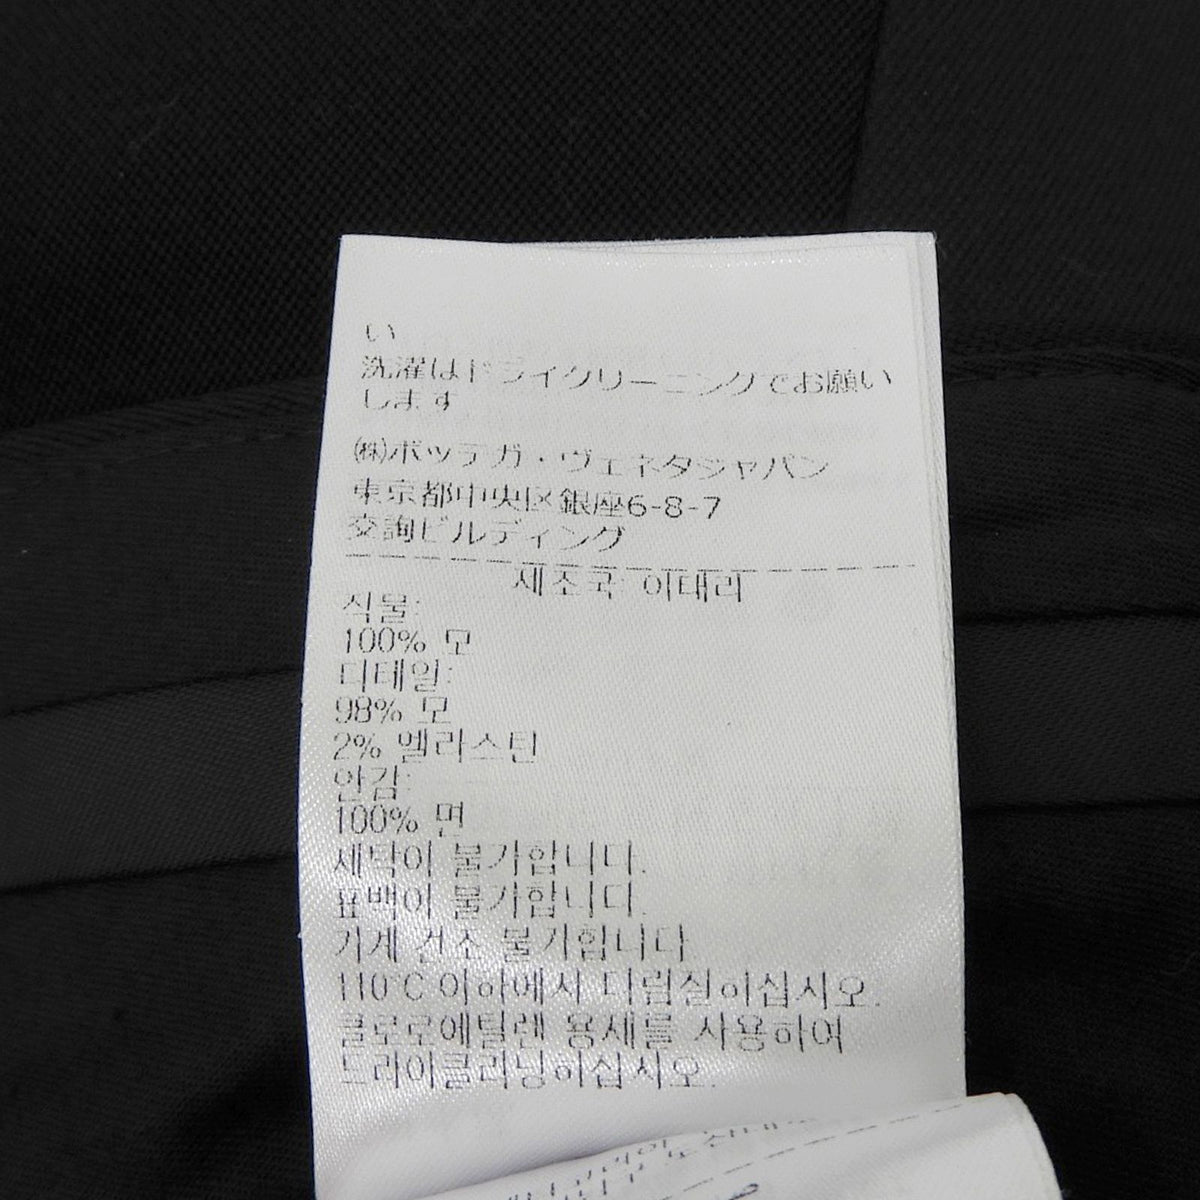 い
洗濯はドライクリーニングでお願い
します
㈱ボッテガ・ヴェネタジャパン
東京都中央区銀座6-8-7
交詢ビルディング
제조국: 이태리
직물:
100% 모
디테일:
98% 모
2% 엘라스틴
안감:
100% 면
세탁이 불가합니다.
표백이 불가합니다.
기계 건조 불가합니다.
110°C 이하에서 다림질하십시오.
클로로에틸렌 용제를 사용하여
드라이클리닝하십시오.